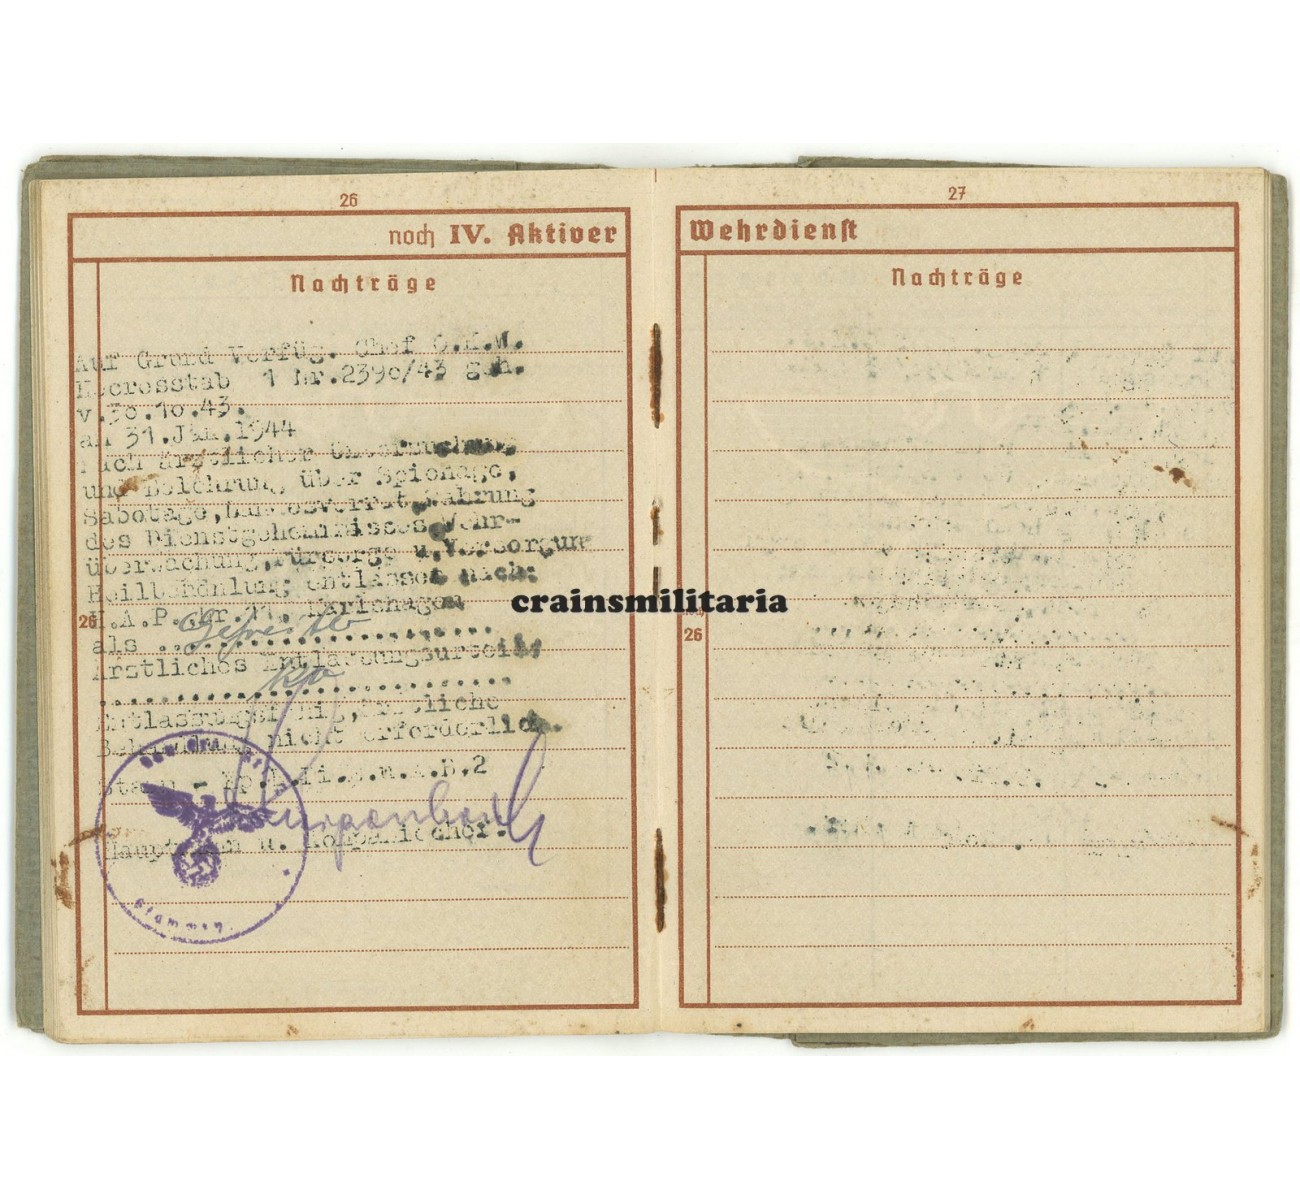 26
noch IV. Aktiver
Nachträge
Auf Grund Verfüg. Chef O.K.W.
Heeresstab 1 Nr.239o/43 geh.
v.3o.1o.43.
am 31.Jan.1944
nach ärztlicher Untersuchung
und Belehrung über Spionage,
Sabotage,Landesverrat,Wahrung
des Dienstgeheimnisses,Wehr-
überwachung,Fürsorge u.Versorgung
Heilbehandlung entlassen nach:
H.A.P. 11, Karlshagen
26
als Gefreiter
Ärztliches Entlassungsurteil:
kv
Entlassungsfähig,ärztliche
Behandlung nicht erforderlich.
Hauptmann u. Kompaniechef.
27
Wehrdienst
Nachträge
26
crainsmilitaria